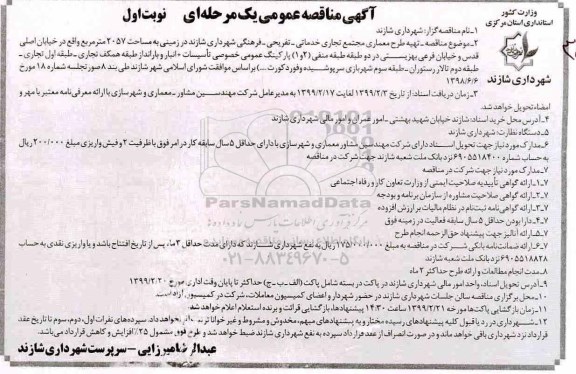 وزارت کشور
استانداری استان مرکزی
شهرداری شازند
آگهی مناقصه عمومی یک مرحله‌ای نوبت اول
۱-نام مناقصه گزار: شهرداری شازند
۲-موضوع مناقصه-تهیه طرح معماری مجتمع تجاری خدماتی-تفریحی-فرهنگی شهرداری شازند در زمینی به مساحت ۲۰۵۷ مترمربع واقع در خیابان اصلی
قدس و خیابان فرعی بهزیستی در دو طبقه طبقه منفی (۱و۲) پارکینگ عمومی خصوصی تأسیسات+انبار و بارانداز طبقه همکف تجاری-طبقه اول تجاری-
طبقه دوم تالار رستوران-طبقه سوم شهربازی سرپوشیده وفودکورت...) براساس موافقت شورای اسلامی شهر شازند طی بند ۸ صورتجلسه شماره ۱۸ مورخ
۱۳۹۸/۶/۶
۳-زمان دریافت اسناد: از تاریخ ۱۳۹۹/۲/۳ لغایت ۱۳۹۹/۲/۱۷ به مدیرعامل شرکت مهندسین مشاور-معماری و شهرسازی با ارائه معرفی‌نامه معتبر با مهر و
امضاء تحویل خواهد شد.
۴-آدرس محل خرید اسناد: شازند خیابان شهید بهشتی-امور عمران و امور مالی شهرداری شازند
۵-دستگاه نظارت: شهرداری شازند
۶-مدارک مورد نیاز جهت تحویل اسناد دارای شرکت مهندسین مشاور معماری و شهرسازی با دارای حداقل ۵ سال سابقه کار در امر فوق با ظرفیت ۲ و فیش واریزی مبلغ ۲۰۰/۰۰۰ ریال
به حساب شماره ۶۹۰۵۵۱۸۴۰۰ نزد بانک ملت شعبه شازند جهت شرکت در مناقصه
۷-مدارک مورد نیاز جهت شرکت در مناقصه
۷-۱-ارائه گواهی تأییدیه صلاحیت ایمنی از وزارت تعاون کار و رفاه اجتماعی
۷-۲-ارائه گواهی صلاحیت مشاوره از سازمان برنامه و بودجه
۷-۳-ارائه گواهی‌نامه ثبت‌نام در نظام مالیات بر ارزش افزوده
۷-۴-دارا بودن حداقل ۵ سال سابقه فعالیت در زمینه فوق
۷-۵-ارائه آنالیز جهت پیشنهاد حق‌الزحمه انجام طرح
۷-۶-ارائه ضمانت‌نامه بانکی شرکت در مناقصه به مبلغ ۱۷۵/۰۰۰/۰۰۰ ریال به نفع شهرداری شازند که دارای مدت حداقل ۳ ماه، پس از تاریخ افتتاح باشد و یا واریزی نقدی به حساب
۶۹۰۵۵۱۸۸۲۸ نزد بانک ملت شعبه شازند
۸-مدت انجام مطالعات و ارائه طرح حداکثر ۲ ماه
۹-آدرس تحویل اسناد، واحد امور مالی شهرداری شازند در پاکت در بسته شامل پاکت (الف-ب-ج) حداکثر تا پایان وقت اداری مورخ ۱۳۹۹/۲/۲۰
۱۰-محل برگزاری مناقصه سالن جلسات شهرداری شازند در حضور شهردار و اعضای کمیسیون معاملات، شرکت در کمیسیون آزاد است
۱۱-زمان بازگشایی پاکت‌ها مورخه ۱۳۹۹/۲/۲۱ ساعت ۱۴:۳۰ پیشنهادها، بازگشایی قرائت و برنده استعلام اعلام خواهد شد
۱۲-شهرداری در رد یا قبول کلیه پیشنهادهای رسیده مختار و به پیشنهادهای مبهم، مخدوش و مشروط و غیر خوانا ترتیب اثر نخواهد داد. سپرده‌های نفرات اول، دوم، سوم تا تاریخ عقد
قرارداد نزد شهرداری باقی خواهد ماند و در صورت انصراف از عقد قرارداد سپرده به نفع شهرداری شازند ضبط خواهد شد و طرح فوق مشمول ۲۵٪ افزایش و کاهش قرارداد می‌باشد.
عبدالرضا میرزایی-سرپرست شهرداری شازند
ParsNamadData
۰۲۱-۸۸۳۴۹۶۷۰-۵